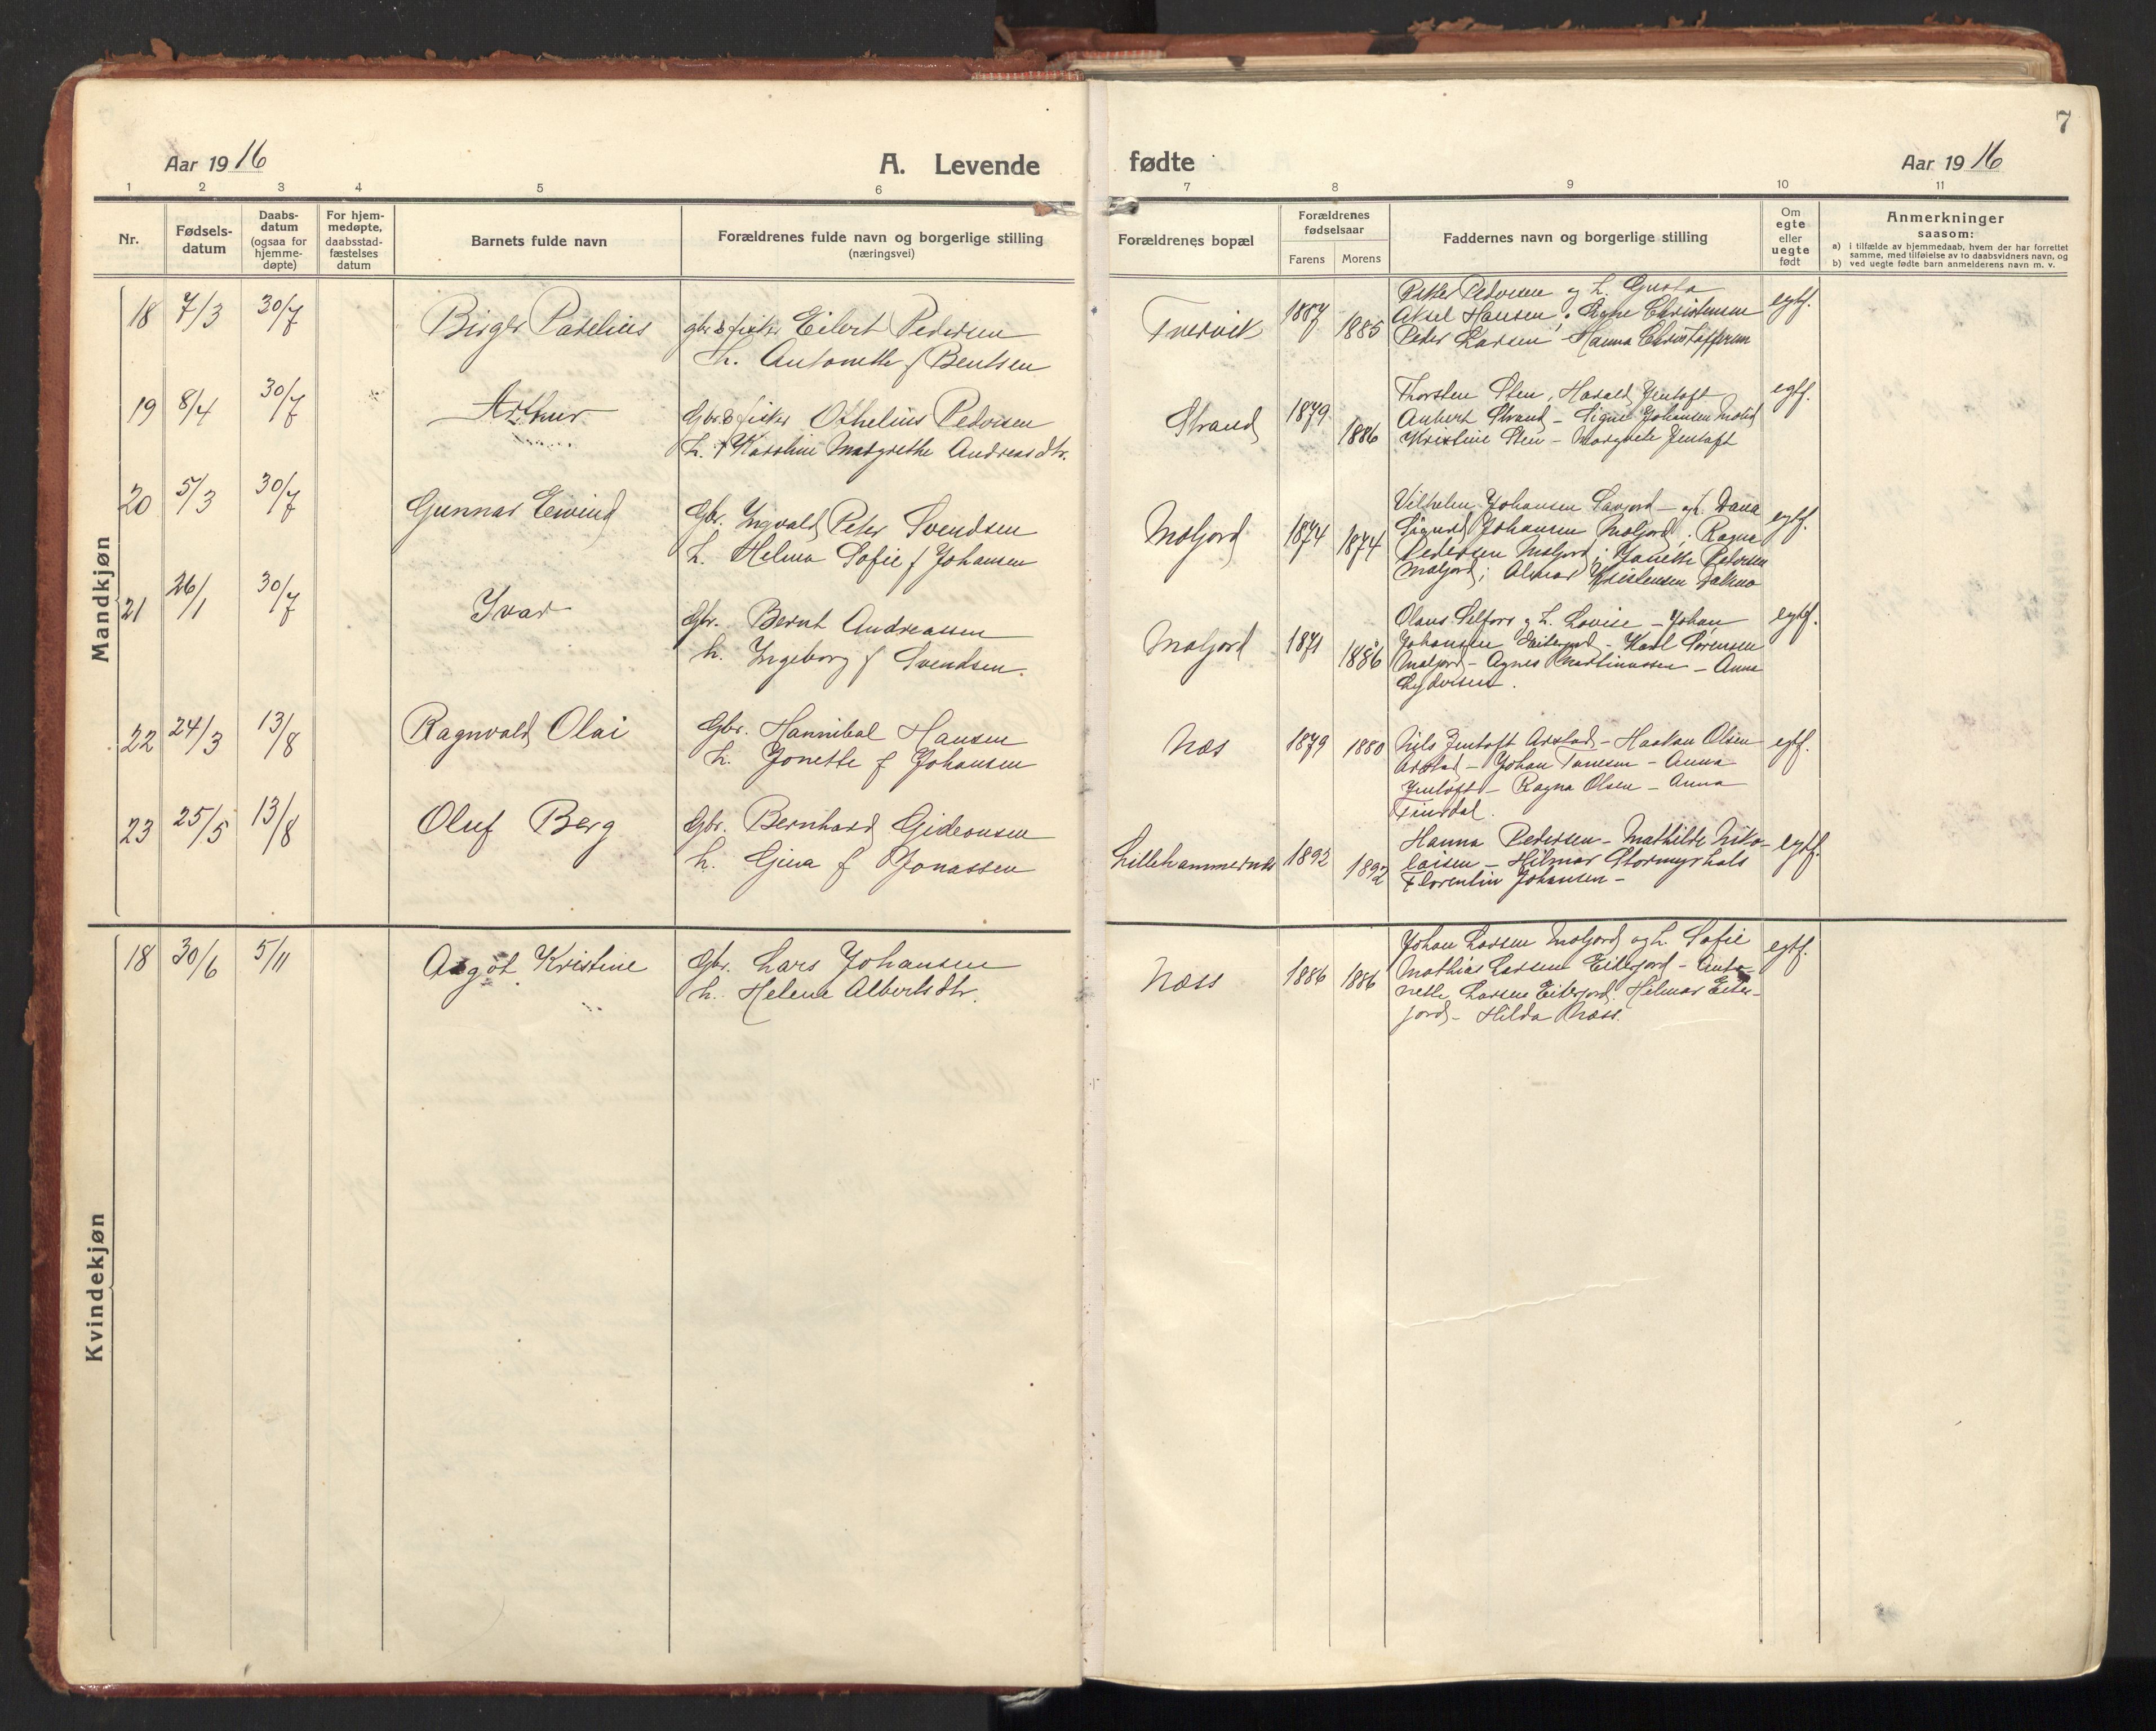 7
Aar 1916
A. Levende
fødte
Aar 1916
1 2 3 4 5 6 7 8 9 10 11
Nr.
Fødsels-
datum
Daabs-
datum
(ogsaa for
hjemme-
døpte)
For hjem-
medøpte,
daabsstad-
fæstelses
datum
Barnets fulde navn
Forældrenes fulde navn og borgerlige stilling
(næringsvei)
Forældrenes bopæl
Forældrenes
fødselsaar
Farens Morens
Faddernes navn og borgerlige stilling
Om
egte
eller
uegte
født
Anmerkninger
saasom:
a) i tilfælde av hjemmedaab, hvem der har forrettet
samme, med tilføielse av to daabsvidners navn, og
b) ved uegte fødte barn anmelderens navn m. v.
Mandkjøn
18 7/3 30/7
Birger Parelius
gbr. & fisker Eilert Pedersen
h. Antonette f Bentsen
Tvervik
1887 1885
Petter Pedersen og h. Gusta
Aksel Hansen, Signe Christensen
Peder Larsen - Hanna Christoffersen
egtf.
19 8/4 30/7
Arthur
Gbr. & fisker Othelius Pedersen
h. Karoline Margrethe Andreasdtr.
Strand
1879 1886
Thorsten Sten, Harald Jentoft
Aubert Strand - Signe Johansen
Kristine Sten - Margrete Jentoft
egtf.
20 5/3 30/7
Gunnar Eivind
Gbr. Ingvald Peter Svendsen
h. Helma Sofie f Johansen
Moljord
1874 1874
Vilhelm Johansen - og h. Dana
Sigurd Johansen Moljord; Ragna
Pedersen Moljord; Janette Pedersen
Moljord; Almar Kristensen
egtf.
21 26/1 30/7
Ivar
Gbr. Bernt Andreassen
h. Ingeborg f Svendsen.
Moljord
1871 1886
Olaus Selfors og h. Lovise - Johan
Johansen Eiterjord - Karl Sørensen
Moljord - Agnes Martinussen - Anna
Sydvesen.
egtf.
22 24/3 13/8
Ragnvald Olai
Gbr. Hannibal Hansen
h. Jonette f Johansen
Næs
1879 1880
Nils Jentoft Arstad - Haakon Olsen
Arstad - Johan Tønesen - Anna
Jentoft - Ragna Olsen - Anna
egtf.
23 25/5 13/8
Oluf Berg
Gbr. Bernhard Gideonsen
h. Gina f Jonassen
Lillehammernæs
1892 1892
Hanna Pedersen - Mathilde Niko-
laisen - Hilmar Stormyrhals
Florentin Johansen -
egtf.
Kvindekjøn
18 30/6 5/11
Aagot Kristine
Gbr. Lars Johansen
h. Helene Albertsdtr.
Næss
1886 1886
Johan Larsen Moljord og h. Sofie
Mathias Larsen Eiterjord - Anto-
nette Larsen Eiterjord. Hilmar Eiter-
jord - Hilda Næss.
egtf.